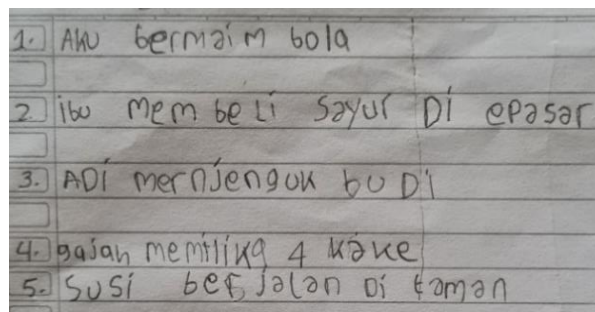 1. AKU bermaim bola
2 ibu mem beli sayur Di epasar
3. ADi mernjenguk bu Di
4. gajah memiliKq 4 kake
5. SUSi ber,jalan Di taman